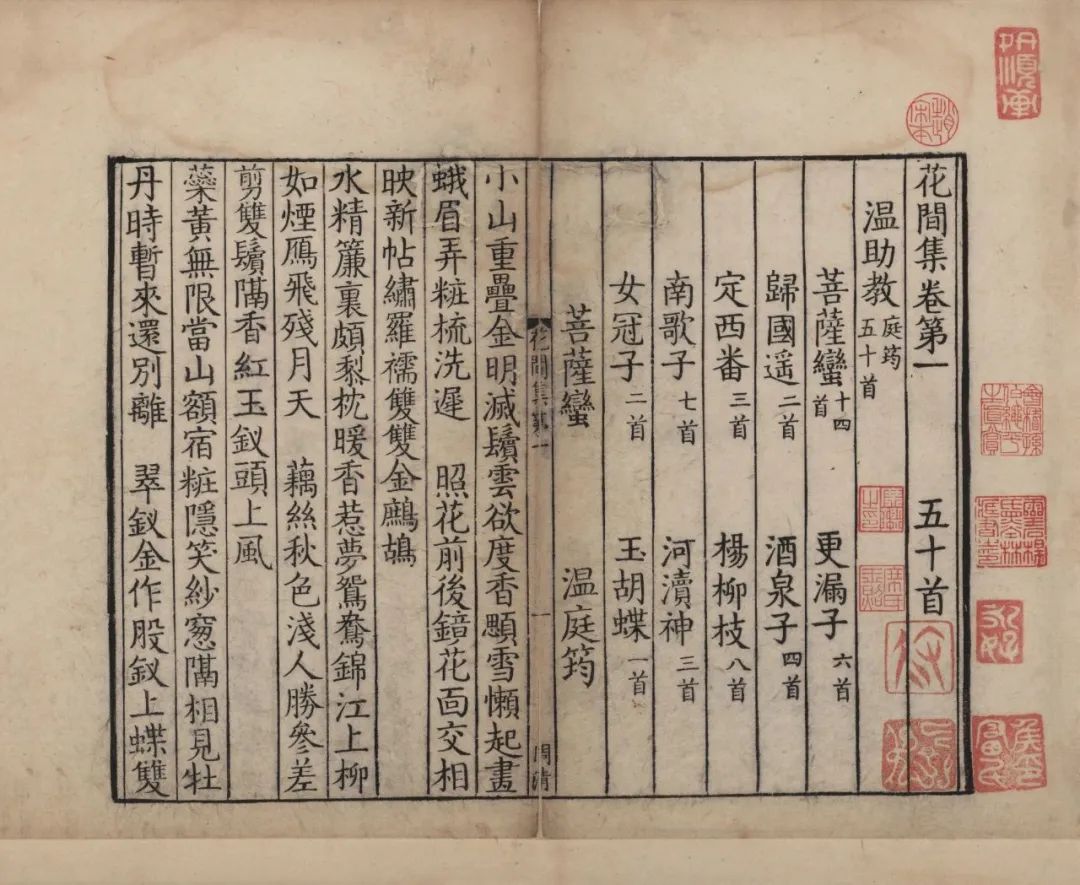 花間集卷第一 五十首
温助教庭筠五十首
菩薩蠻十四首 更漏子六首
歸國遥二首 酒泉子四首
定西番三首 楊柳枝八首
南歌子七首 河瀆神三首
女冠子二首 玉胡蝶一首
菩薩蠻 温庭筠
小山重疊金明滅鬢雲欲度香顋雪懶起畫
花間集第一
一
蛾眉弄粧梳洗遲 照花前後鏡花面交相
映新帖繡羅襦雙雙金鷓鴣
水精簾裏頗黎枕暖香惹夢鴛鴦錦江上柳
如煙鴈飛殘月天 藕絲秋色淺人勝參差
剪雙鬢隔香紅玉釵頭上風
蘂黃無限當山額宿粧隱笑紗窻隔相見牡
丹時暫來還別離 翠釵金作股釵上蝶雙